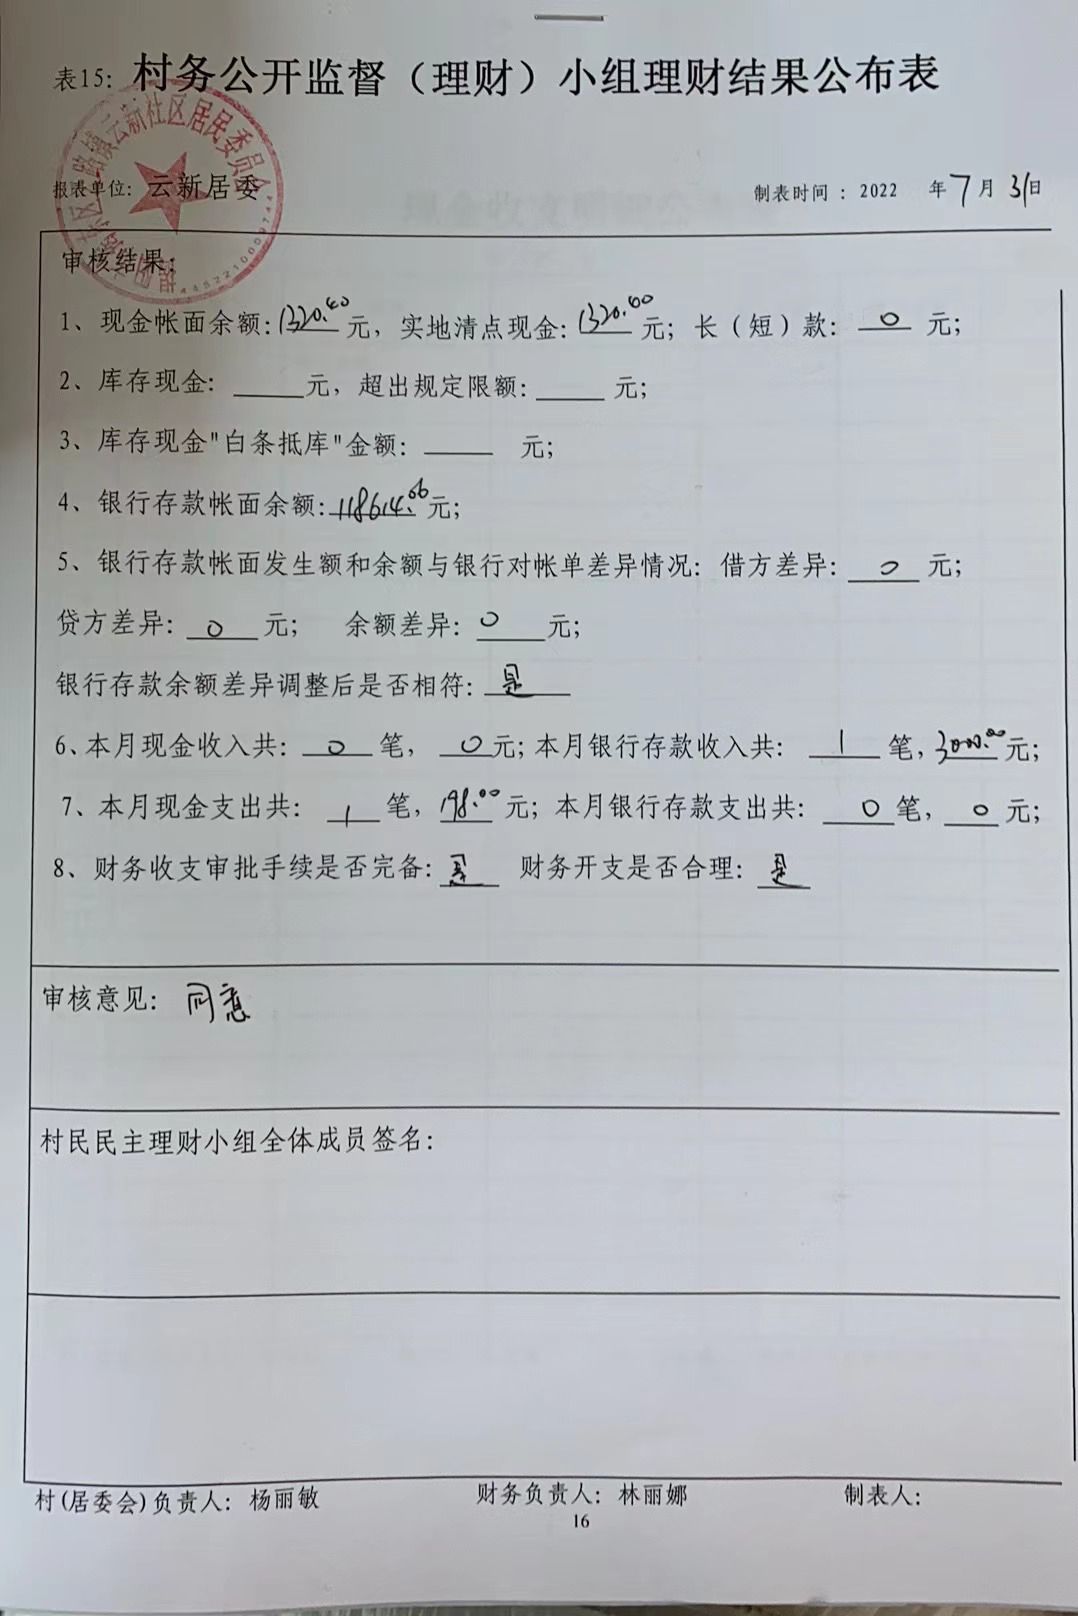 表15: 村务公开监督（理财）小组理财结果公布表
报表单位: 云新居委 制表时间 : 2022 年7月31日
审核结果:
1、现金帐面余额:1320.60元, 实地清点现金:1320.60元; 长（短）款: 0 元;
2、库存现金: ____元, 超出规定限额:____ 元;
3、库存现金"白条抵库"金额: ____ 元;
4、银行存款帐面余额:118614.06元;
5、银行存款帐面发生额和余额与银行对帐单差异情况: 借方差异: 0 元;
贷方差异: 0 元; 余额差异: 0 元;
银行存款余额差异调整后是否相符: 是
6、本月现金收入共: 0 笔, 0元; 本月银行存款收入共: 1 笔, 3000.00元;
7、本月现金支出共: 1 笔, 198.00元; 本月银行存款支出共: 0笔, 0 元;
8、财务收支审批手续是否完备: 是 财务开支是否合理: 是
审核意见: 同意
村民民主理财小组全体成员签名:
村(居委会)负责人: 杨丽敏 财务负责人: 林丽娜 制表人:
16